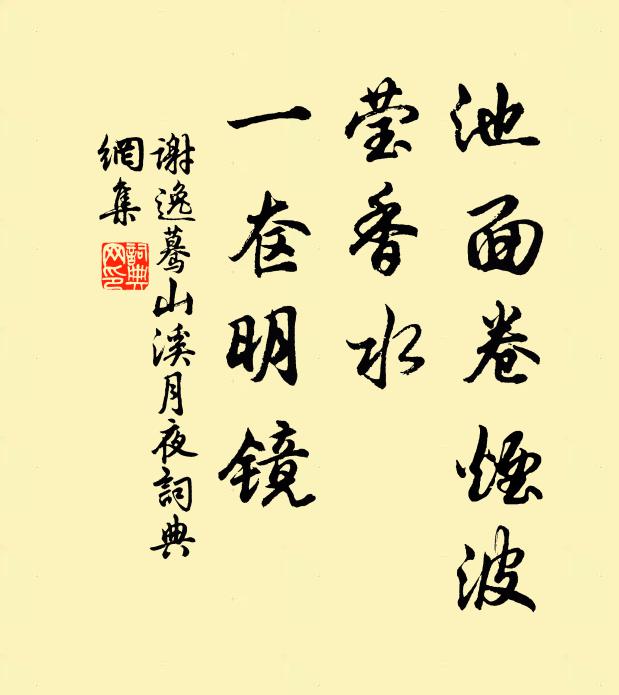 池面卷煙波
莹香水
一奁明镜
謝逸蓦山溪月夜詞典
網集
詞典
网印